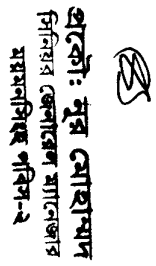 প্রকৌ: নূর মোহাম্মদ
সিনিয়র জেনারেল ম্যানেজার
ময়মনসিংহ পবিস-২